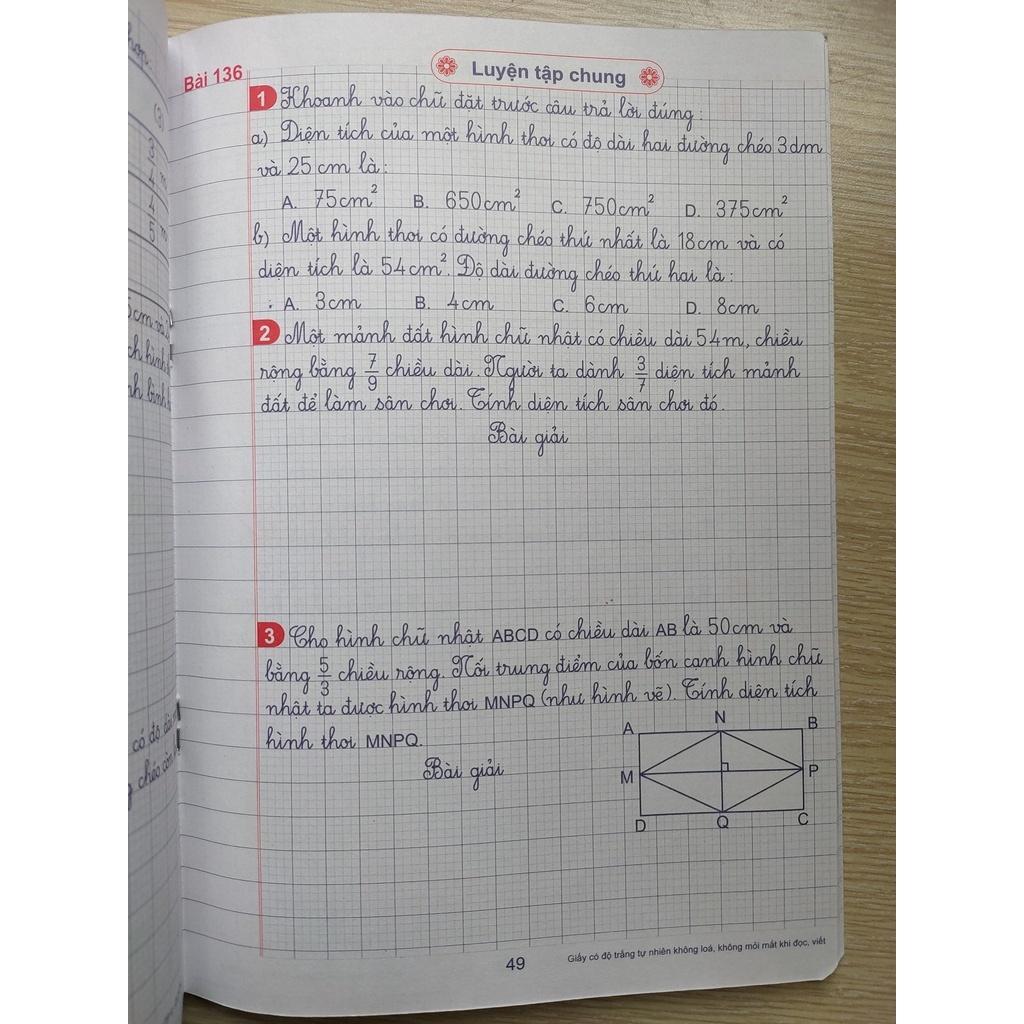 Bài 136
Luyện tập chung
1 Khoanh vào chữ đặt trước câu trả lời đúng:
a) Diện tích của một hình thoi có độ dài hai đường chéo 3dm
và 25cm là:
A. 75cm² B. 650cm² C. 750cm² D. 375cm²
b) Một hình thoi có đường chéo thứ nhất là 18cm và có
diện tích là 54cm². Độ dài đường chéo thứ hai là:
A. 3cm B. 4cm C. 6cm D. 8cm
2 Một mảnh đất hình chữ nhật có chiều dài 54m, chiều
rộng bằng 7/9 chiều dài. Người ta dành 3/7 diện tích mảnh
đất để làm sân chơi. Tính diện tích sân chơi đó.
Bài giải
3 Cho hình chữ nhật ABCD có chiều dài AB là 50cm và
bằng 5/3 chiều rộng. Nối trung điểm của bốn cạnh hình chữ
nhật ta được hình thoi MNPQ (như hình vẽ). Tính diện tích
hình thoi MNPQ.
Bài giải
A N B
M P
D Q C
49
Giấy có độ trắng tự nhiên không loá, không mỏi mắt khi đọc, viết